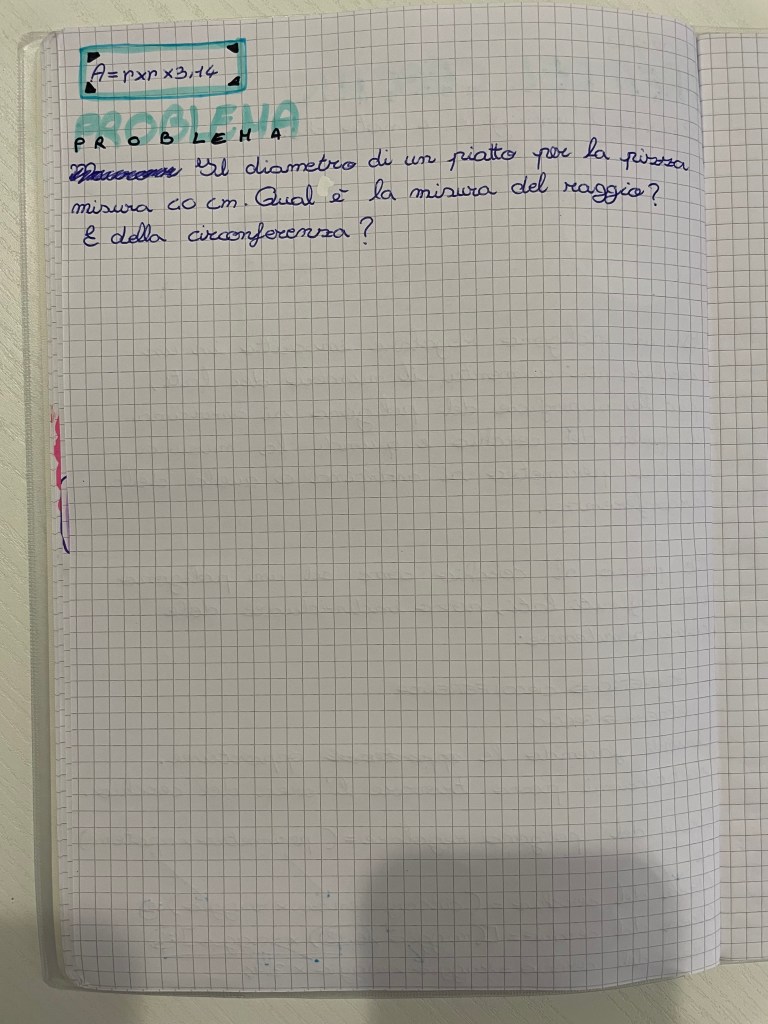 A=r×r×3,14
PROBLEMA
PROBLEMA
Il diametro di un piatto per la pizza
misura 40 cm. Qual è la misura del raggio?
E della circonferenza?